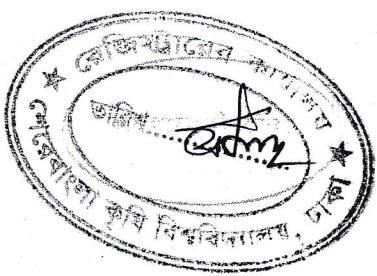 রেজিস্ট্রারের কার্যালয়
তারিখ
শেরেবাংলা কৃষি বিশ্ববিদ্যালয়, ঢাকা